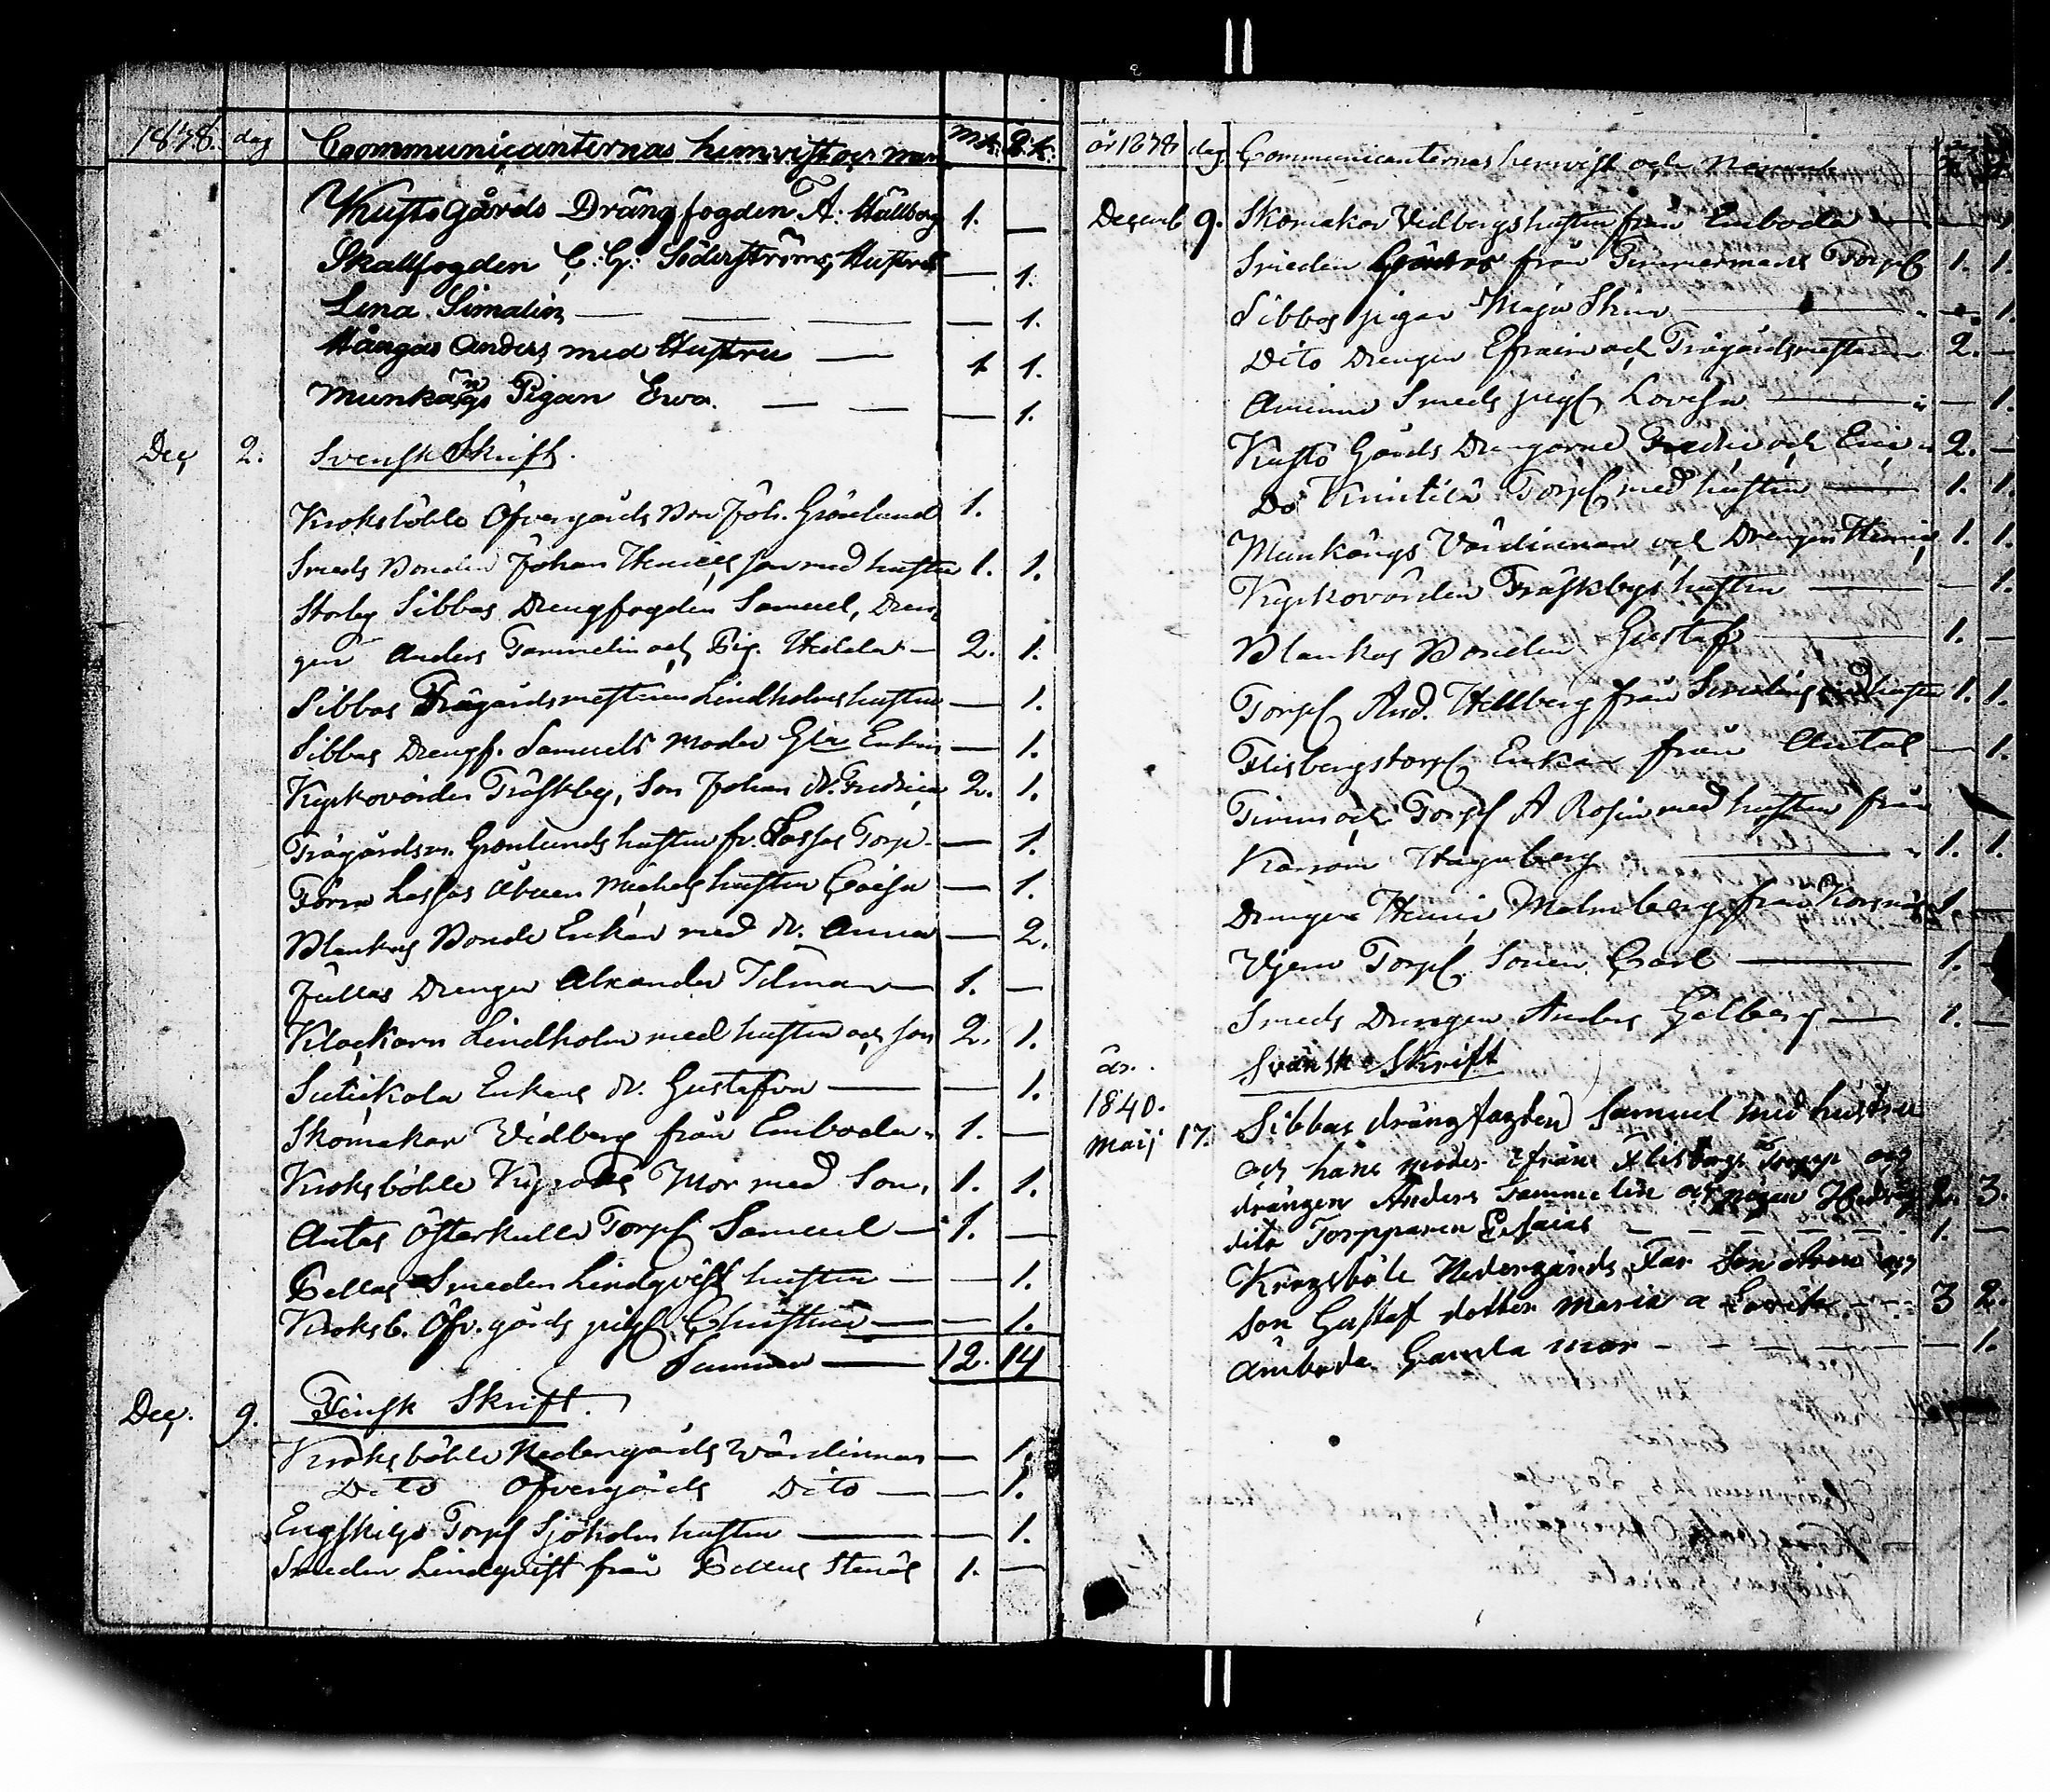 1838. dag Communicanternas hemvist och namn mk: Qk:
Kustö Gårds Drängfogden A: Hällberg 1. —
Skallfogden C: G: Söderströms Hustru — 1.
Lena Simalin — — — — 1.
Hångas Anders med Hustru — 1 1.
Munkängs Pigan Ewa. — — — 1.
Dec 2. Svensk Skrift.
Kroksböhle Öfvergårds Bon Joh. Grönlund 1.
Smeds Bonden Johan Henricsson med hustru 1. 1.
Storby Sibbas Drengfogden Samuel, Dren
gen Anders Tammelin och Pig. Hedda — 2. 1.
Sibbas Trägårdsmestaren Lindholms hustru — 1.
Sibbas Drengf. Samuels Moder Enkan — 1.
Kyrkovärden Träskby, Son Johan D. Fredrica 2. 1.
Trägårdsm. Grönlunds hustru fr. Lassas Torp — — 1.
Förra Lassas Åbuen Michels hustru Caisa — 1.
Blankas Bonde Enkan med D. Anna — 2.
Jullas Drengen Alexander Idman — 1. —
Klockarn Lindholm med hustru och son 2. 1.
Enkans D. Gustafva — — 1.
Skomakar Vidberg från Emboda 1. —
Kroksböhle Mor med Son, 1. 1.
Antas Österkulla Torp. Samuel — 1. —
Pellas Smeden Lindqvist hustru — — 1.
Kroksb. Öfv. gårds pig. Christina — — 1.
Summa — 12. 14
Dec. 9. Finsk Skrift.
Kroksböhle Nedergårds Wärdinnan — 1.
Dito Öfvergårds Dito — — 1.
Torp. Sjöholms hustru — — 1.
Smeden Lindqvist från Pellas Stenås 1. —
år 1838 dag Communicanternas hemvist och Namn
Decemb 9. Skomakar Vidbergs hustru från Emboda —
Smeden från Timmermans Torp 1. 1.
Sibbas pigan Maja — 1.
Dito Drengen Efraim och Trägårdsmestaren 2. —
Smeds pig. Lovisa — — 1.
Kustö Gårds Drengarne Fredric och Eric 2. —
Do Torp. med hustru — 1. 1.
Munkängs Värdinnan och Drengen Henric 1. 1.
Kyrkovärden Träskbys hustru — — 1.
Blankas Bonden Gustaf — 1. —
Torp. And. Hellberg från med hustru 1. 1.
Flisbergstorp. Enkan från Antas — 1.
Torp. A Rosin med hustru från
Hagaberg — 1. 1.
Drengen Henric Malmberg från 1. —
Torp. Sonen Carl — 1. —
Smeds Drengen Anders Gelberg — 1. —
år. Svänsk Skrift
1840.
Maij 17. Sibbas drängfogden Samuel med hustru
och häns moder ifrån Flisberg Torpp och
drängen Anders Tammelin och pigan Hedvig 2. 3.
dito Torpparen Esaias — — — — 1. —
Krogsböle Nedergårds Far Son och
Son Gustaf dotter Maria a — 3 2.
Ämboda Gamla mor — — — — — 1.